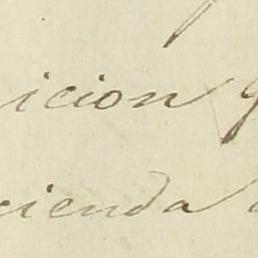 icion
cienda